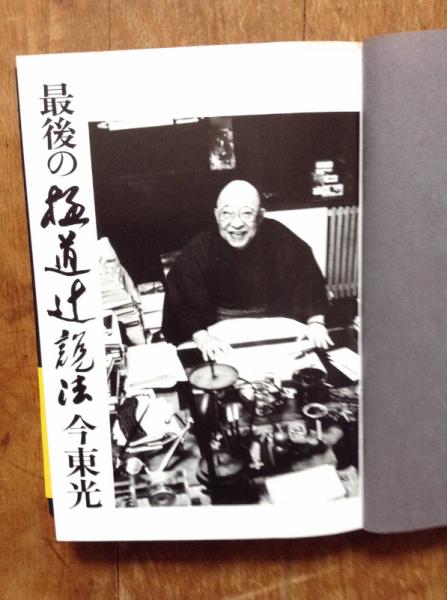 最後の極道辻説法 今東光